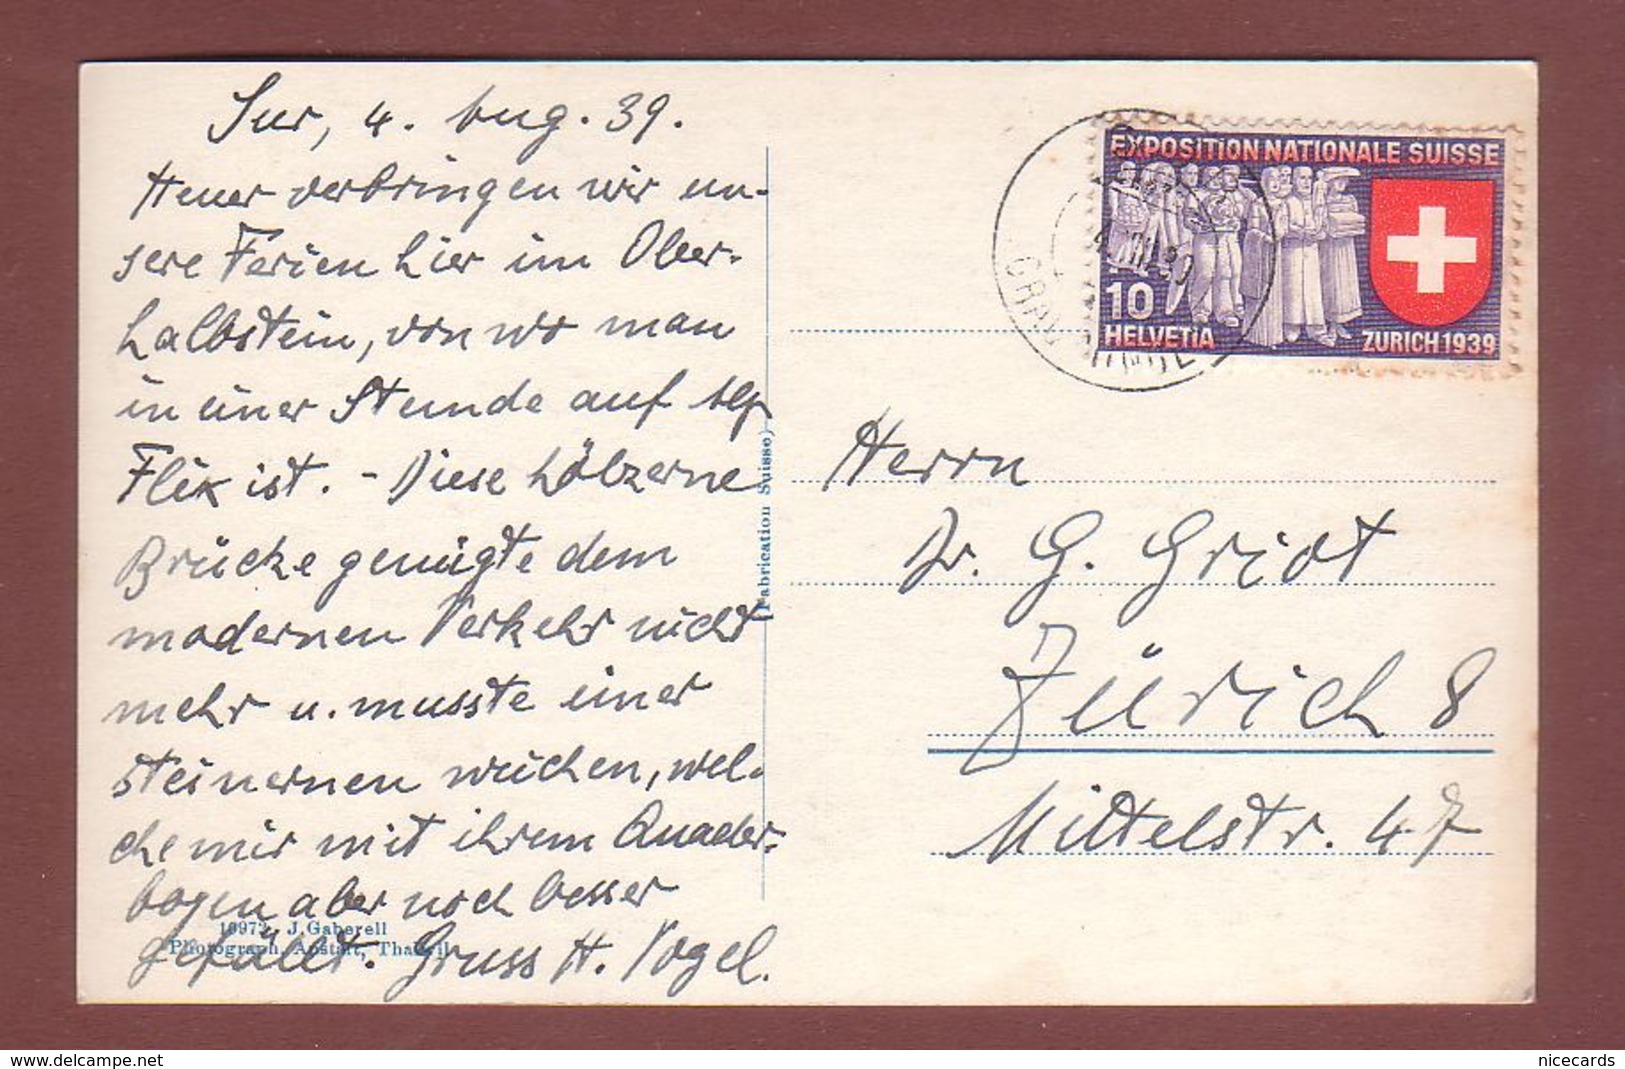 Sur, 4. Aug. 39.
Heuer verbringen wir un-
sere Ferien hier im Ober-
halbstein, von wo man
in einer Stunde auf Alp
Flix ist. - Diese hölzerne
Brücke genügte dem
modernen Verkehr nicht
mehr u. musste einer
steinernen weichen, wel-
che mir mit ihrem Quader-
bogen aber noch besser
gefällt. Gruss H. Vogel.
J. Gaberell
Photograph. Anstalt, Thalwil
(Fabrication Suisse)
EXPOSITION NATIONALE SUISSE
10
HELVETIA
ZURICH 1939
Herrn
Dr. G.
Zürich 8
Mittelstr. 47
www.delcampe.net
nicecards